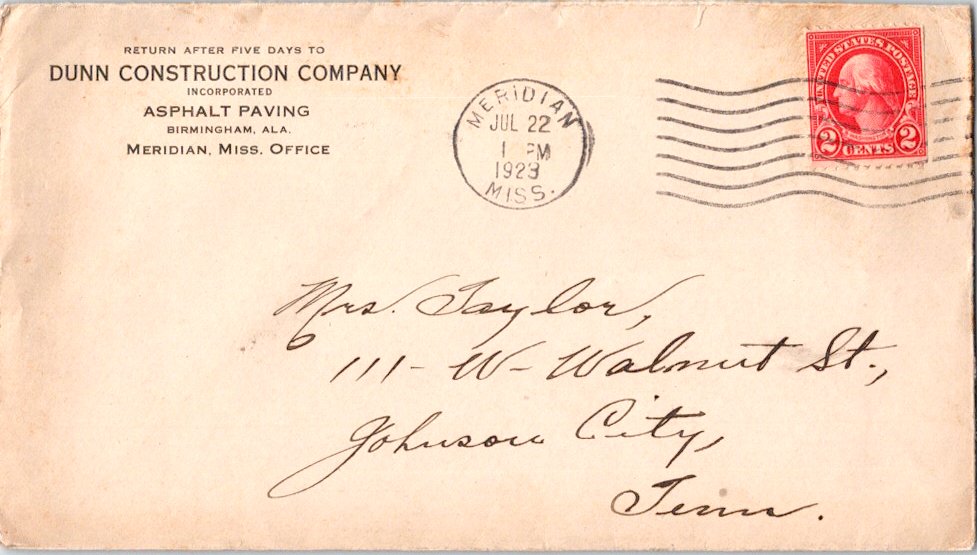 RETURN AFTER FIVE DAYS TO
DUNN CONSTRUCTION COMPANY
INCORPORATED
ASPHALT PAVING
BIRMINGHAM, ALA.
MERIDIAN, MISS. OFFICE
MERIDIAN
JUL 22
1 PM
1923
MISS.
UNITED STATES POSTAGE
2 CENTS 2
Mrs. Taylor,
111 - W - Walnut St.,
Johnson City,
Tenn.